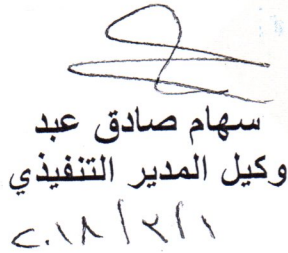 سهام صادق عبد
وكيل المدير التنفيذي
٢٠١٨/٢/١